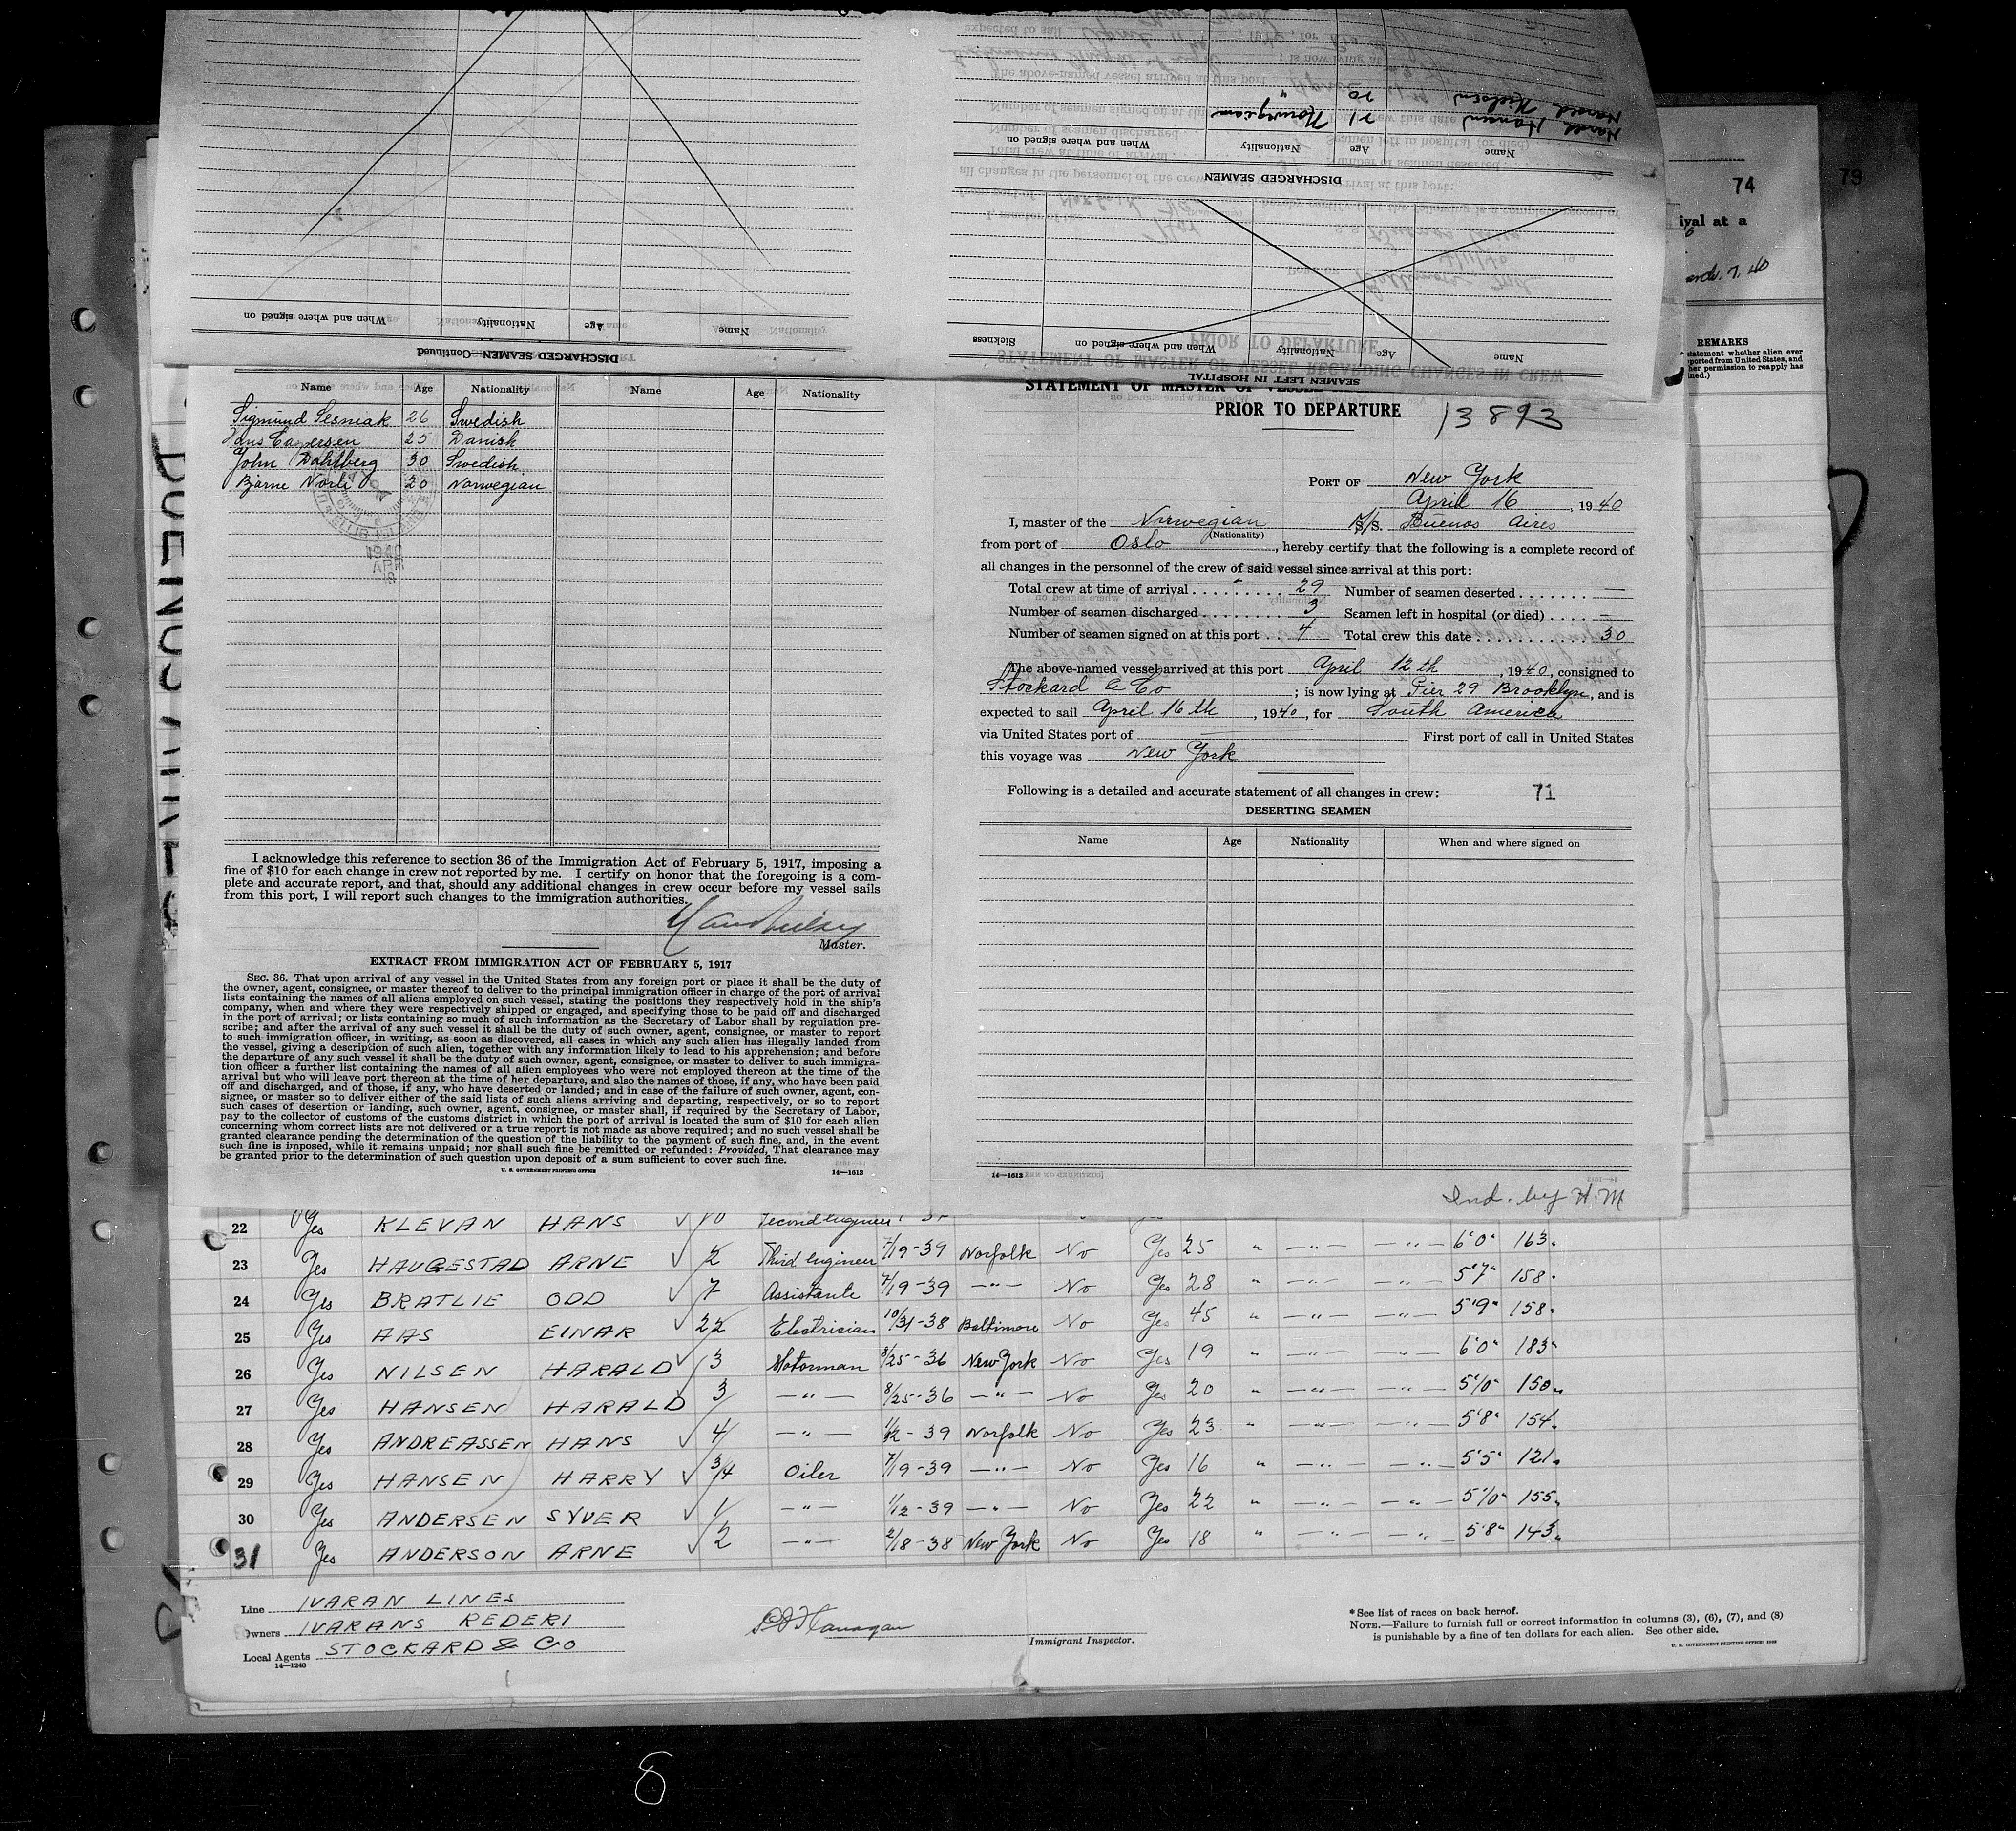 DISCHARGED SEAMEN—Continued
Name Age Nationality When and where signed on
DISCHARGED SEAMEN
Name Age Nationality When and where signed on
Harald Nielsen
Harald Hansen 21 Norwegian
20 "
SEAMEN LEFT IN HOSPITAL
Name Age Nationality When and where signed on Sickness
74
79
ival at a
REMARKS
Name Age Nationality Name Age Nationality
Sigmund Lesniak 26 Swedish
25 Danish
John Dahlberg 30 Swedish
Bjarne 20 Norwegian
1940
APR
I acknowledge this reference to section 36 of the Immigration Act of February 5, 1917, imposing a
fine of $10 for each change in crew not reported by me. I certify on honor that the foregoing is a com-
plete and accurate report, and that, should any additional changes in crew occur before my vessel sails
from this port, I will report such changes to the immigration authorities.
Master.
EXTRACT FROM IMMIGRATION ACT OF FEBRUARY 5, 1917
SEC. 36. That upon arrival of any vessel in the United States from any foreign port or place it shall be the duty of
the owner, agent, consignee, or master thereof to deliver to the principal immigration officer in charge of the port of arrival
lists containing the names of all aliens employed on such vessel, stating the positions they respectively hold in the ship's
company, when and where they were respectively shipped or engaged, and specifying those to be paid off and discharged
in the port of arrival; or lists containing so much of such information as the Secretary of Labor shall by regulation pre-
scribe; and after the arrival of any such vessel it shall be the duty of such owner, agent, consignee, or master to report
to such immigration officer, in writing, as soon as discovered, all cases in which any such alien has illegally landed from
the vessel, giving a description of such alien, together with any information likely to lead to his apprehension; and before
the departure of any such vessel it shall be the duty of such owner, agent, consignee, or master to deliver to such immigra-
tion officer a further list containing the names of all alien employees who were not employed thereon at the time of the
arrival but who will leave port thereon at the time of her departure, and also the names of those, if any, who have been paid
off and discharged, and of those, if any, who have deserted or landed; and in case of the failure of such owner, agent, con-
signee, or master so to deliver either of the said lists of such aliens arriving and departing, respectively, or so to report
such cases of desertion or landing, such owner, agent, consignee, or master shall, if required by the Secretary of Labor,
pay to the collector of customs of the customs district in which the port of arrival is located the sum of $10 for each alien
concerning whom correct lists are not delivered or a true report is not made as above required; and no such vessel shall be
granted clearance pending the determination of the question of the liability to the payment of such fine, and, in the event
such fine is imposed, while it remains unpaid; nor shall such fine be remitted or refunded: Provided, That clearance may
be granted prior to the determination of such question upon deposit of a sum sufficient to cover such fine.
U. S. GOVERNMENT PRINTING OFFICE 14—1613
STATEMENT OF MASTER OF
PRIOR TO DEPARTURE 13893
PORT OF New York
April 16, 1940
I, master of the Norwegian M/S. Buenos Aires
(Nationality)
from port of Oslo, hereby certify that the following is a complete record of
all changes in the personnel of the crew of said vessel since arrival at this port:
Total crew at time of arrival 29 Number of seamen deserted —
Number of seamen discharged 3 Seamen left in hospital (or died) —
Number of seamen signed on at this port 4 Total crew this date 30
The above-named vessel arrived at this port April 12th, 1940, consigned to
Stockard & Co; is now lying at Pier 29 Brooklyn, and is
expected to sail April 16th, 1940, for South America
via United States port of — First port of call in United States
this voyage was New York
Following is a detailed and accurate statement of all changes in crew: 71
DESERTING SEAMEN
Name Age Nationality When and where signed on
14—1613
Ind. by H.M
22 Yes KLEVAN HANS 10 Second engineer
23 Yes HAUGESTAD ARNE 2 Third engineer 7/19-39 Norfolk No Yes 25 " —"— —"— 6'0" 163
24 Yes BRATLIE ODD 7 Assistante 7/19-39 —"— No Yes 28 " —"— —"— 5'7" 158
25 Yes AAS EINAR 22 Electrician 10/31-38 Baltimore No Yes 45 " —"— —"— 5'9" 158
26 Yes NILSEN HARALD 3 Motorman 8/25-36 New York No Yes 19 " —"— —"— 6'0" 183
27 Yes HANSEN HARALD 3 —"— 8/25-36 —"— No Yes 20 " —"— —"— 5'10" 150
28 Yes ANDREASSEN HANS 4 —"— 1/12-39 Norfolk No Yes 23 " —"— —"— 5'8" 154
29 Yes HANSEN HARRY 3/4 Oiler 7/19-39 —"— No Yes 16 " —"— —"— 5'5" 121
30 Yes ANDERSEN SYVER 1 —"— 1/12-39 —"— No Yes 22 " —"— —"— 5'10" 155
31 Yes ANDERSON ARNE 2 —"— 2/18-38 New York No Yes 18 " —"— —"— 5'8" 143
Line IVARAN LINES
Owners IVARANS REDERI
Local Agents STOCKARD & CO
14—1240
Flanagan
Immigrant Inspector.
* See list of races on back hereof.
NOTE.—Failure to furnish full or correct information in columns (3), (6), (7), and (8)
is punishable by a fine of ten dollars for each alien. See other side.
U. S. GOVERNMENT PRINTING OFFICE
8